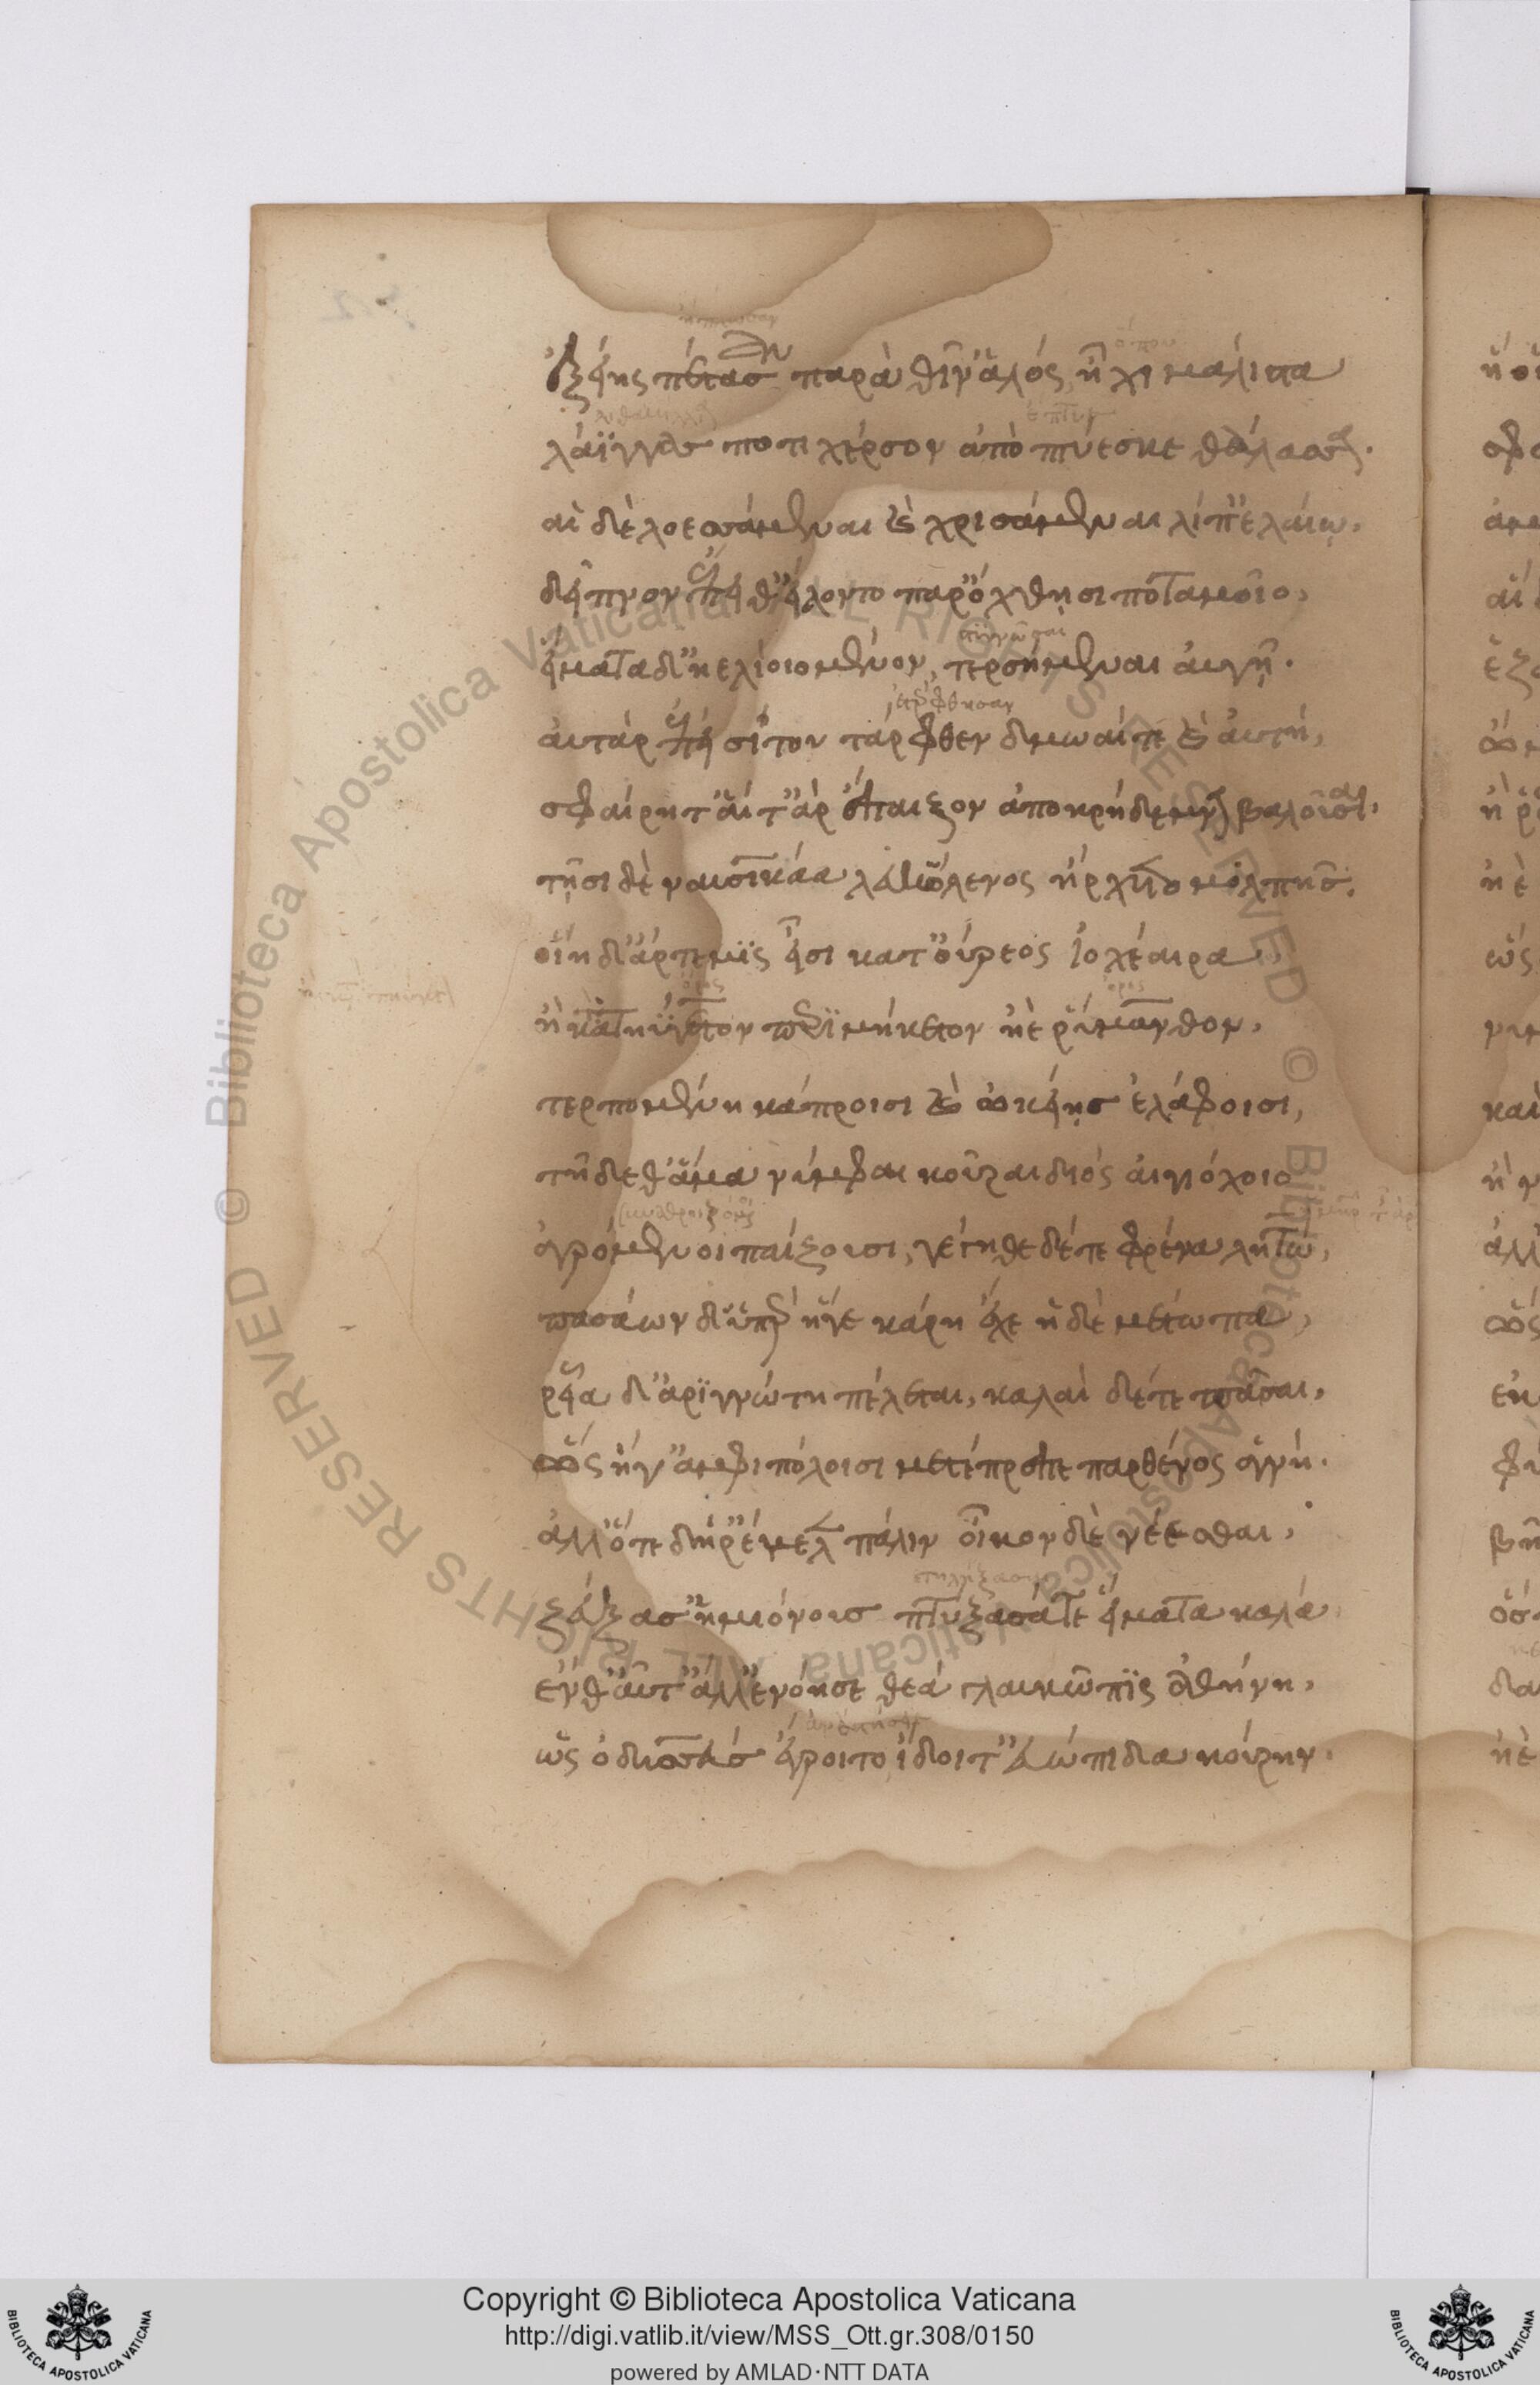 ἑξείης πέτασαν παρὰ θῖν' ἁλός ἧχι μάλιστα
λάϊγγας ποτὶ χέρσον ἀπόπτυεσκε θάλασσα.
αἱ δὲ λοεσσάμεναι καὶ χρισάμεναι λίπ' ἐλαίω.
δεῖπνον ἔπειθ' εἵλοντο παρ' ὄχθησι ποταμοῖο,
εἵματα δ' ἠελίοιο μένον, τερσήμεναι αὐγῇ.
αὐτὰρ ἐπεὶ σίτου τάρφθεν δμωαί τε καὶ αὐτή,
σφαίρη τ' αἵ τ' ἄρ ἔπαιζον ἀπὸ κρήδεμνα βαλοῦσαι.
τῇσι δὲ ναυσικάα λευκώλενος ἤρχετο μολπῆς.
οἵη δ' ἄρτεμις εἶσι κατ' οὔρεος ἰοχέαιρα,
ἢ κατὰ τηΰγετον περιμήκετον ἠὲ ρύμανθον,
τερπομένη κάπροισι καὶ ὠκείης ἐλάφοισι,
τῇ δέ θ' ἅμα νύμφαι κοῦραι διός αἰγιόχοιο
ἀγρόμεναι παίζουσι, γέγηθε δέ τε φρένα λητώ,
πασάων δ' ὑπὲρ ἥγε κάρη ἔχει ἠδὲ μέτωπα,
ρεῖα δ' ἀριγνώτη πέλεται, καλαὶ δέ τε πᾶσαι,
ὣς ἥγ' ἀμφιπόλοισι μετέπρεπε παρθένος ἁγνή.
ἀλλ' ὅτε δὴ ρ' ἔμελε πάλιν οἶκον δὲ νέεσθαι,
ζεύξας' ἡμιόνους πτύξασά τε εἵματα καλά
ἔνθ' αὖτ' ἄλλ' ἐνόησε θεά γλαυκῶπις ἀθήνη,
ὡς ὀδυσσεύς ἔγροιτο ἴδοιτ' εὐώπιδα κούρην.
Copyright © Biblioteca Apostolica Vaticana
http://digi.vatlib.it/view/MSS_Ott.gr.308/0150
powered by AMLAD·NTT DATA